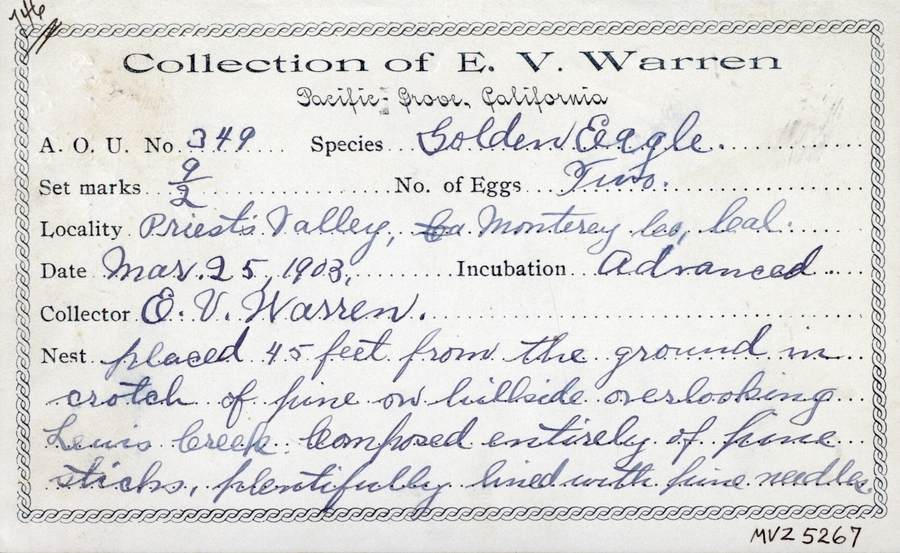 146
Collection of E. V. Warren
Pacific Grove, California
A. O. U. No. 349 Species Golden Eagle.
Set marks 9/2 No. of Eggs Two.
Locality Priest's Valley, Monterey Co, Cal.
Date Mar. 25, 1903, Incubation Advanced
Collector E. V. Warren.
Nest placed 45 feet from the ground in
crotch of pine on hillside overlooking
Lewis Creek. Composed entirely of pine
sticks, plentifully lined with pine needles.
MVZ 5267